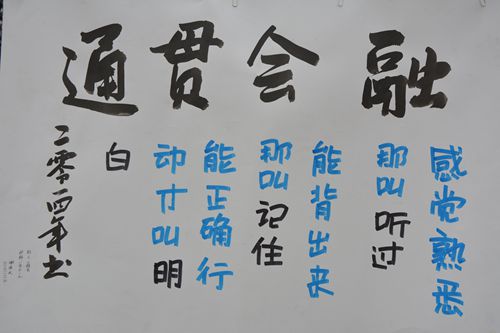 融会贯通
感觉熟悉
那叫听过
能背出来
那叫记住
能正确行
动才叫明
白
二零一四年书